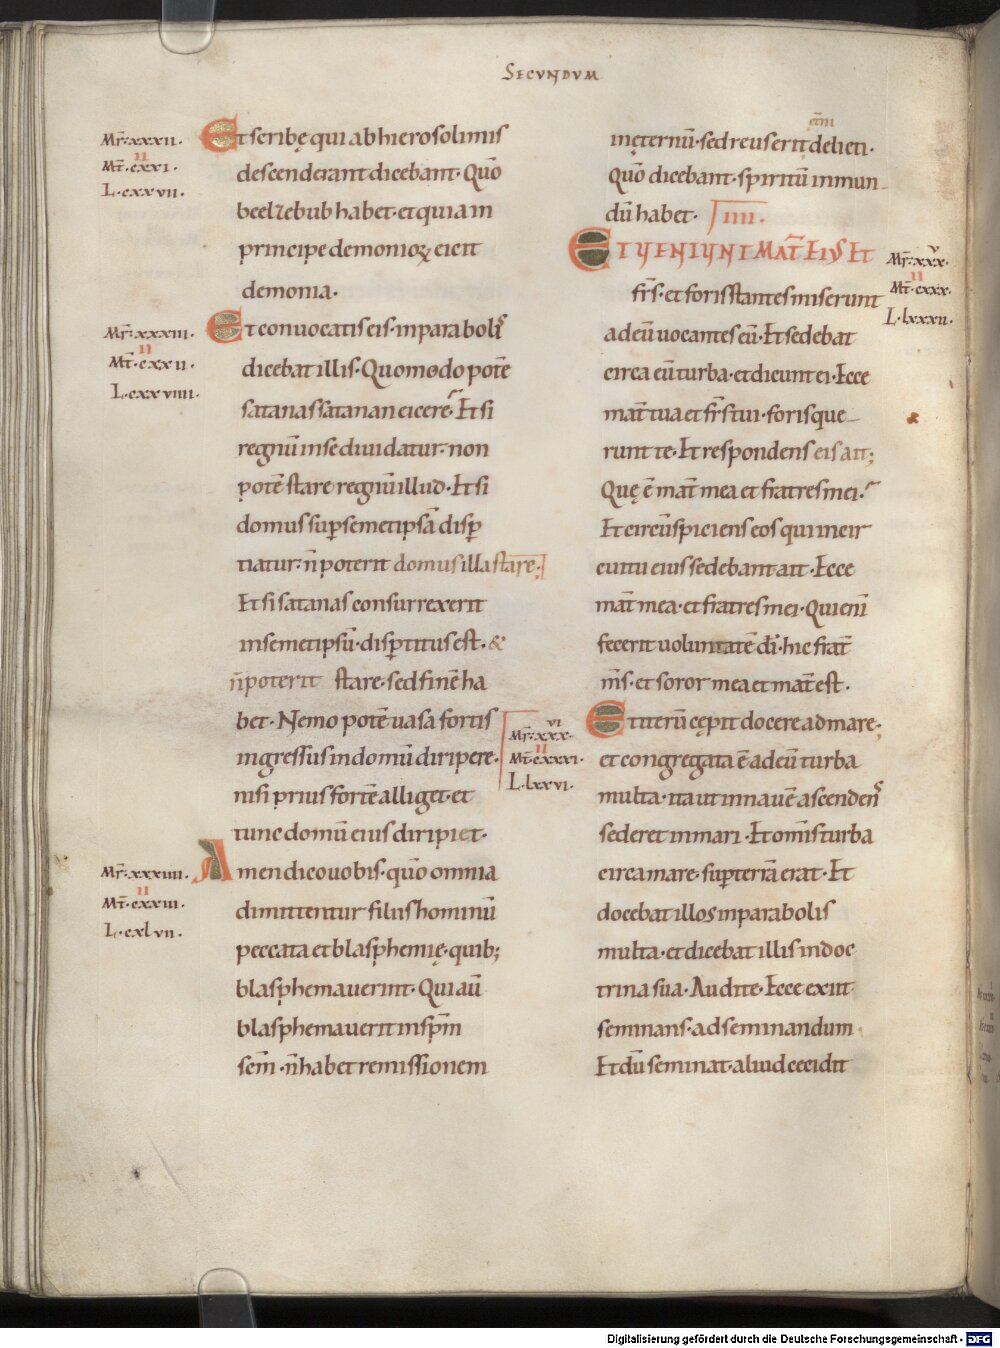 SECUNDUM
Mr̄·xxxii.
II
Mt̄·cxxi.
L·cxxvii.
Et scribę qui ab hierosolimis
descenderant dicebant· Quō
beelzebub habet· et quia in
principe demonioꝝ eicit
demonia·
Mr̄·xxxiii.
II
Mt̄·cxxii.
L·cxxviiii.
Et conuocatis eis· in parabolis
dicebat illis· Quomodo potē
satanas satanan eicere? Et si
regnū in se diuidatur· non
potē stare regnū illud· Et si
domus suꝑ semetipsā disꝑ
tiatur· n̄ poterit domus illa stare;
Et si satanas consurrexerit
in semetipsū· disꝑtitus est· &
n̄ poterit stare· sed finē ha
bet· Nemo potē uasa fortis
ingressus in domū diripere·
nisi prius fortē alliget· et
tunc domū eius diripiet·
Mr̄·xxxiiii.
II
Mt̄·cxxiii.
L·cxlvii.
Amen dico uobis· quō omnia
dimittentur filiis hominū
peccata et blasphemię· quib;
blasphemauerint· Qui aū
blasphemauerit in sp̄m
sc̄m· n̄ habet remissionem
in ęternū· sed reus erit delicti·
Quō dicebant· spiritū inmun
dū habet· IIII.
Mr̄·xxx·
v
II
Mt̄·cxxx·
L·lxxxii.
ET VENIUNT MAT̄ EIUS ET
fr̄s· et foris stantes miserunt
ad eū uocantes eū· Et sedebat
circa eū turba· et dicunt ei· Ecce
mat̄ tua et fr̄s tui· foris que
runt te· Et respondens eis ait;
Quę ē mat̄ mea et fratres mei?
Et circūspiciens eos qui in cir
cuitu eius sedebant ait· Ecce
mat̄ mea· et fratres mei· Qui enī
fecerit uoluntatē dī· hic frat̄
m̄s· et soror mea et mat̄ est·
vi
Mr̄·xxx·
II
Mt̄·cxxxi·
L·lxxvi.
Et iterū cępit docere ad mare;
et congregata ē ad eū turba
multa· ita ut in nauē ascendens
sederet in mari· Et om̄is turba
circa mare· suꝑ terrā erat· Et
docebat illos in parabolis
multa· et dicebat illis in doc
trina sua· Audite· Ecce exiit
seminans· ad seminandum
Et dū seminat· aliud cecidit
Digitalisierung gefördert durch die Deutsche Forschungsgemeinschaft - DFG